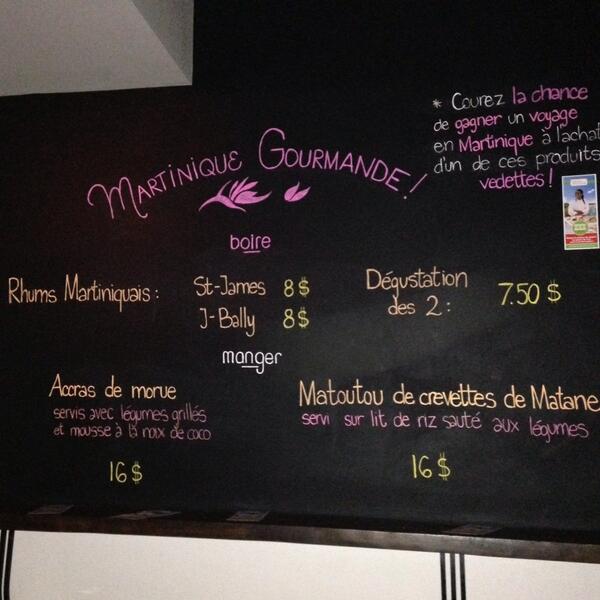 * Courez la chance
de gagner un voyage
en Martinique à l'achat
d'un de ces produits
vedettes!
Martinique Gourmande!
boire
Rhums Martiniquais:
St-James 8$
J-Bally 8$
Dégustation
des 2: 7.50 $
manger
Accras de morue
servis avec légumes grillés
et mousse à la noix de coco
16 $
Matoutou de crevettes de Matane
servi sur lit de riz sauté aux légumes
16 $